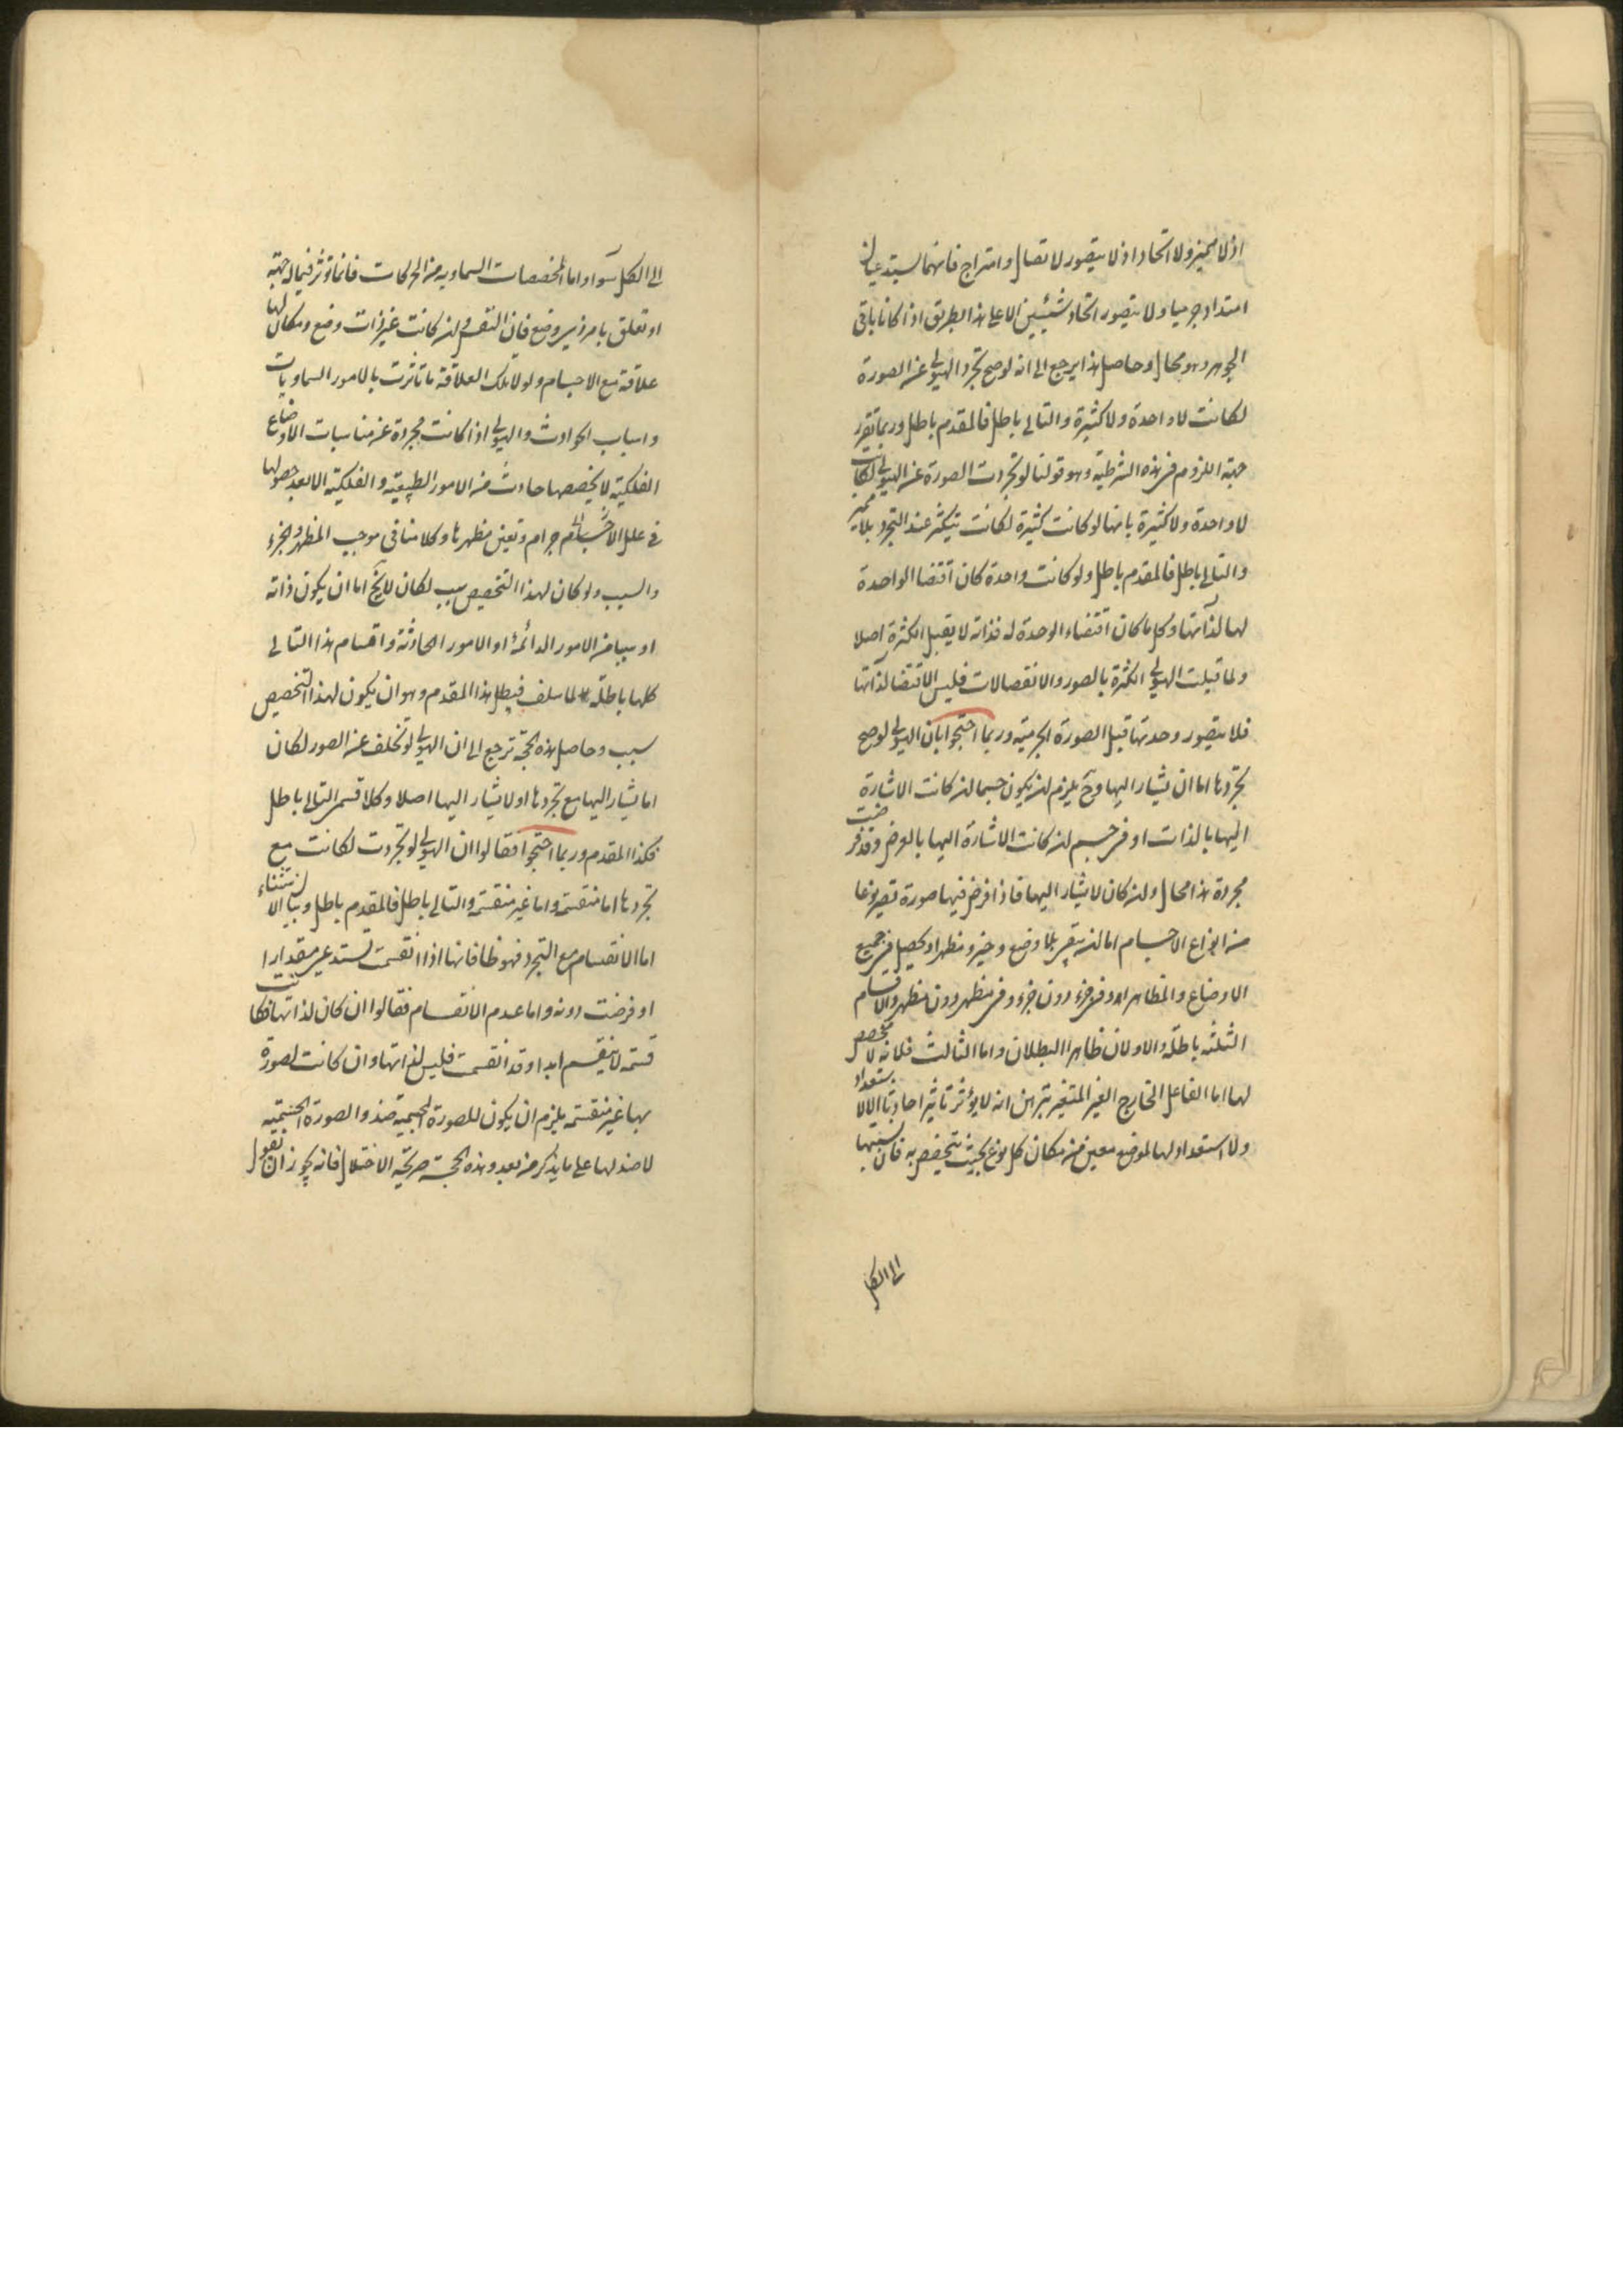 اذ لا مميز ولا اتحاد اذ لا يتصور لا تصال وامتزاج فانهما يستدعيان
امتداد جرميا ولا يتصور اتحاد شيئين الا على هذا الطريق اذا كانا باقى
الجوهر وهو محال وحاصل هذا يرجع الى انه لو صح تجرد الهيولى عن الصورة
لكانت لا واحدة ولا كثيرة والتالى باطل فالمقدم باطل وربما تقرر
جهة اللزوم فى هذه الشرطية وهو قولنا لو تجردت الصورة عن الهيولى لكانت
لا واحدة ولا كثيرة بانها لو كانت كثيرة لكانت تتكثر عند التجرد بلا مميز
والتالى باطل فالمقدم باطل ولو كانت واحدة كان اقتضا الواحدة
لها لذاتها وكل ما كان اقتضاء الوحدة له فذاته لا يقبل الكثرة اصلا
ولما قبلت الهيولى الكثرة بالصور والانفصالات فليس الاقتضا لذاتها
فلا يتصور وحدتها قبل الصورة الجرمية وربما احتجوا بان الهيولى لو صح
تجردها اما ان يشار اليها وح يلزم ان يكون جسما ان كانت الاشارة
اليها بالذات او فى جسم ان كانت الاشارة اليها بالعرض وقد فرضت
مجردة هذا محال وان كان لا يشار اليها فاذا فرض فيها صورة تصير نوعا
من انواع الاجسام اما ان يبقى بلا وضع وحيز ومظهر او يحصل فى جميع
الاوضاع والمظاهر او فى جزء دون جزء وفى مظهر دون مظهر والاقسام
الثلثه باطلة والاولان ظاهرا البطلان واما الثالث فلانه لا مخصص
لها اما الفاعل الخارج الغير المتغير تبرهن انه لا يؤثر تاثيرا حادثا الا لاستعداد
ولا استعداد لها لموضع معين من مكان كل نوع بحيث يتخصص به فان نسبتها
الى الكل
الى الكل سوآء واما المخصصات السماوية من الحركات فانما تؤثر فيما له جهة
او تعلق بامر ذى وضع فان النفس وان كانت غير ذات وضع ومكان لها
علاقة مع الاجسام ولولا تلك العلاقة ما تاثرت بالامور السماويات
واسباب الحوادث والهيولى اذا كانت مجردة عن مناسبات الاوضاع
الفلكية لا يخصصها حادث من الامور الطبيعية والفلكية الا بعد حصولها
فى علل الاجسام جرام وتعين مظهرها وكلامنا فى موجب المظهر والجزء
والسبب ولو كان لهذا التخصيص سبب لكان لا يخ اما ان يكون ذاته
او سببا من الامور الدائمة او الامور الحادثة واقسام هذا التالى
كلها باطلة لما سلف فيبطل هذا المقدم وهو ان يكون لهذا التخصيص
سبب وحاصل هذه الحجة ترجع الى ان الهيولى لو تخلف عن الصور لكان
اما يشار اليها مع تجردها او لا يشار اليها اصلا وكلا قسمى التالى باطل
فكذا المقدم وربما احتجوا فقالوا ان الهيولى لو تجردت لكانت مع
تجردها اما منقسمة واما غير منقسمة والتالى باطل فالمقدم باطل وبيان الاستثناء
اما الانقسام مع التجرد فهو ظا فانها اذا انقسمت تستدعى مقدارا
او فرضت دونه واما عدم الانقسام فقالوا ان كان لذاتها فكانت
قسمة لا ينقسم ابدا وقد انقسمت فليس لذاتها وان كانت لصورة
بها غير منقسمة يلزم ان يكون للصورة الجسمية ضد والصورة الجسمية
لا ضد لها على ما يذكر من بعد وهذه الحجة صريحة الاختلال فانه يجوز ان نقول